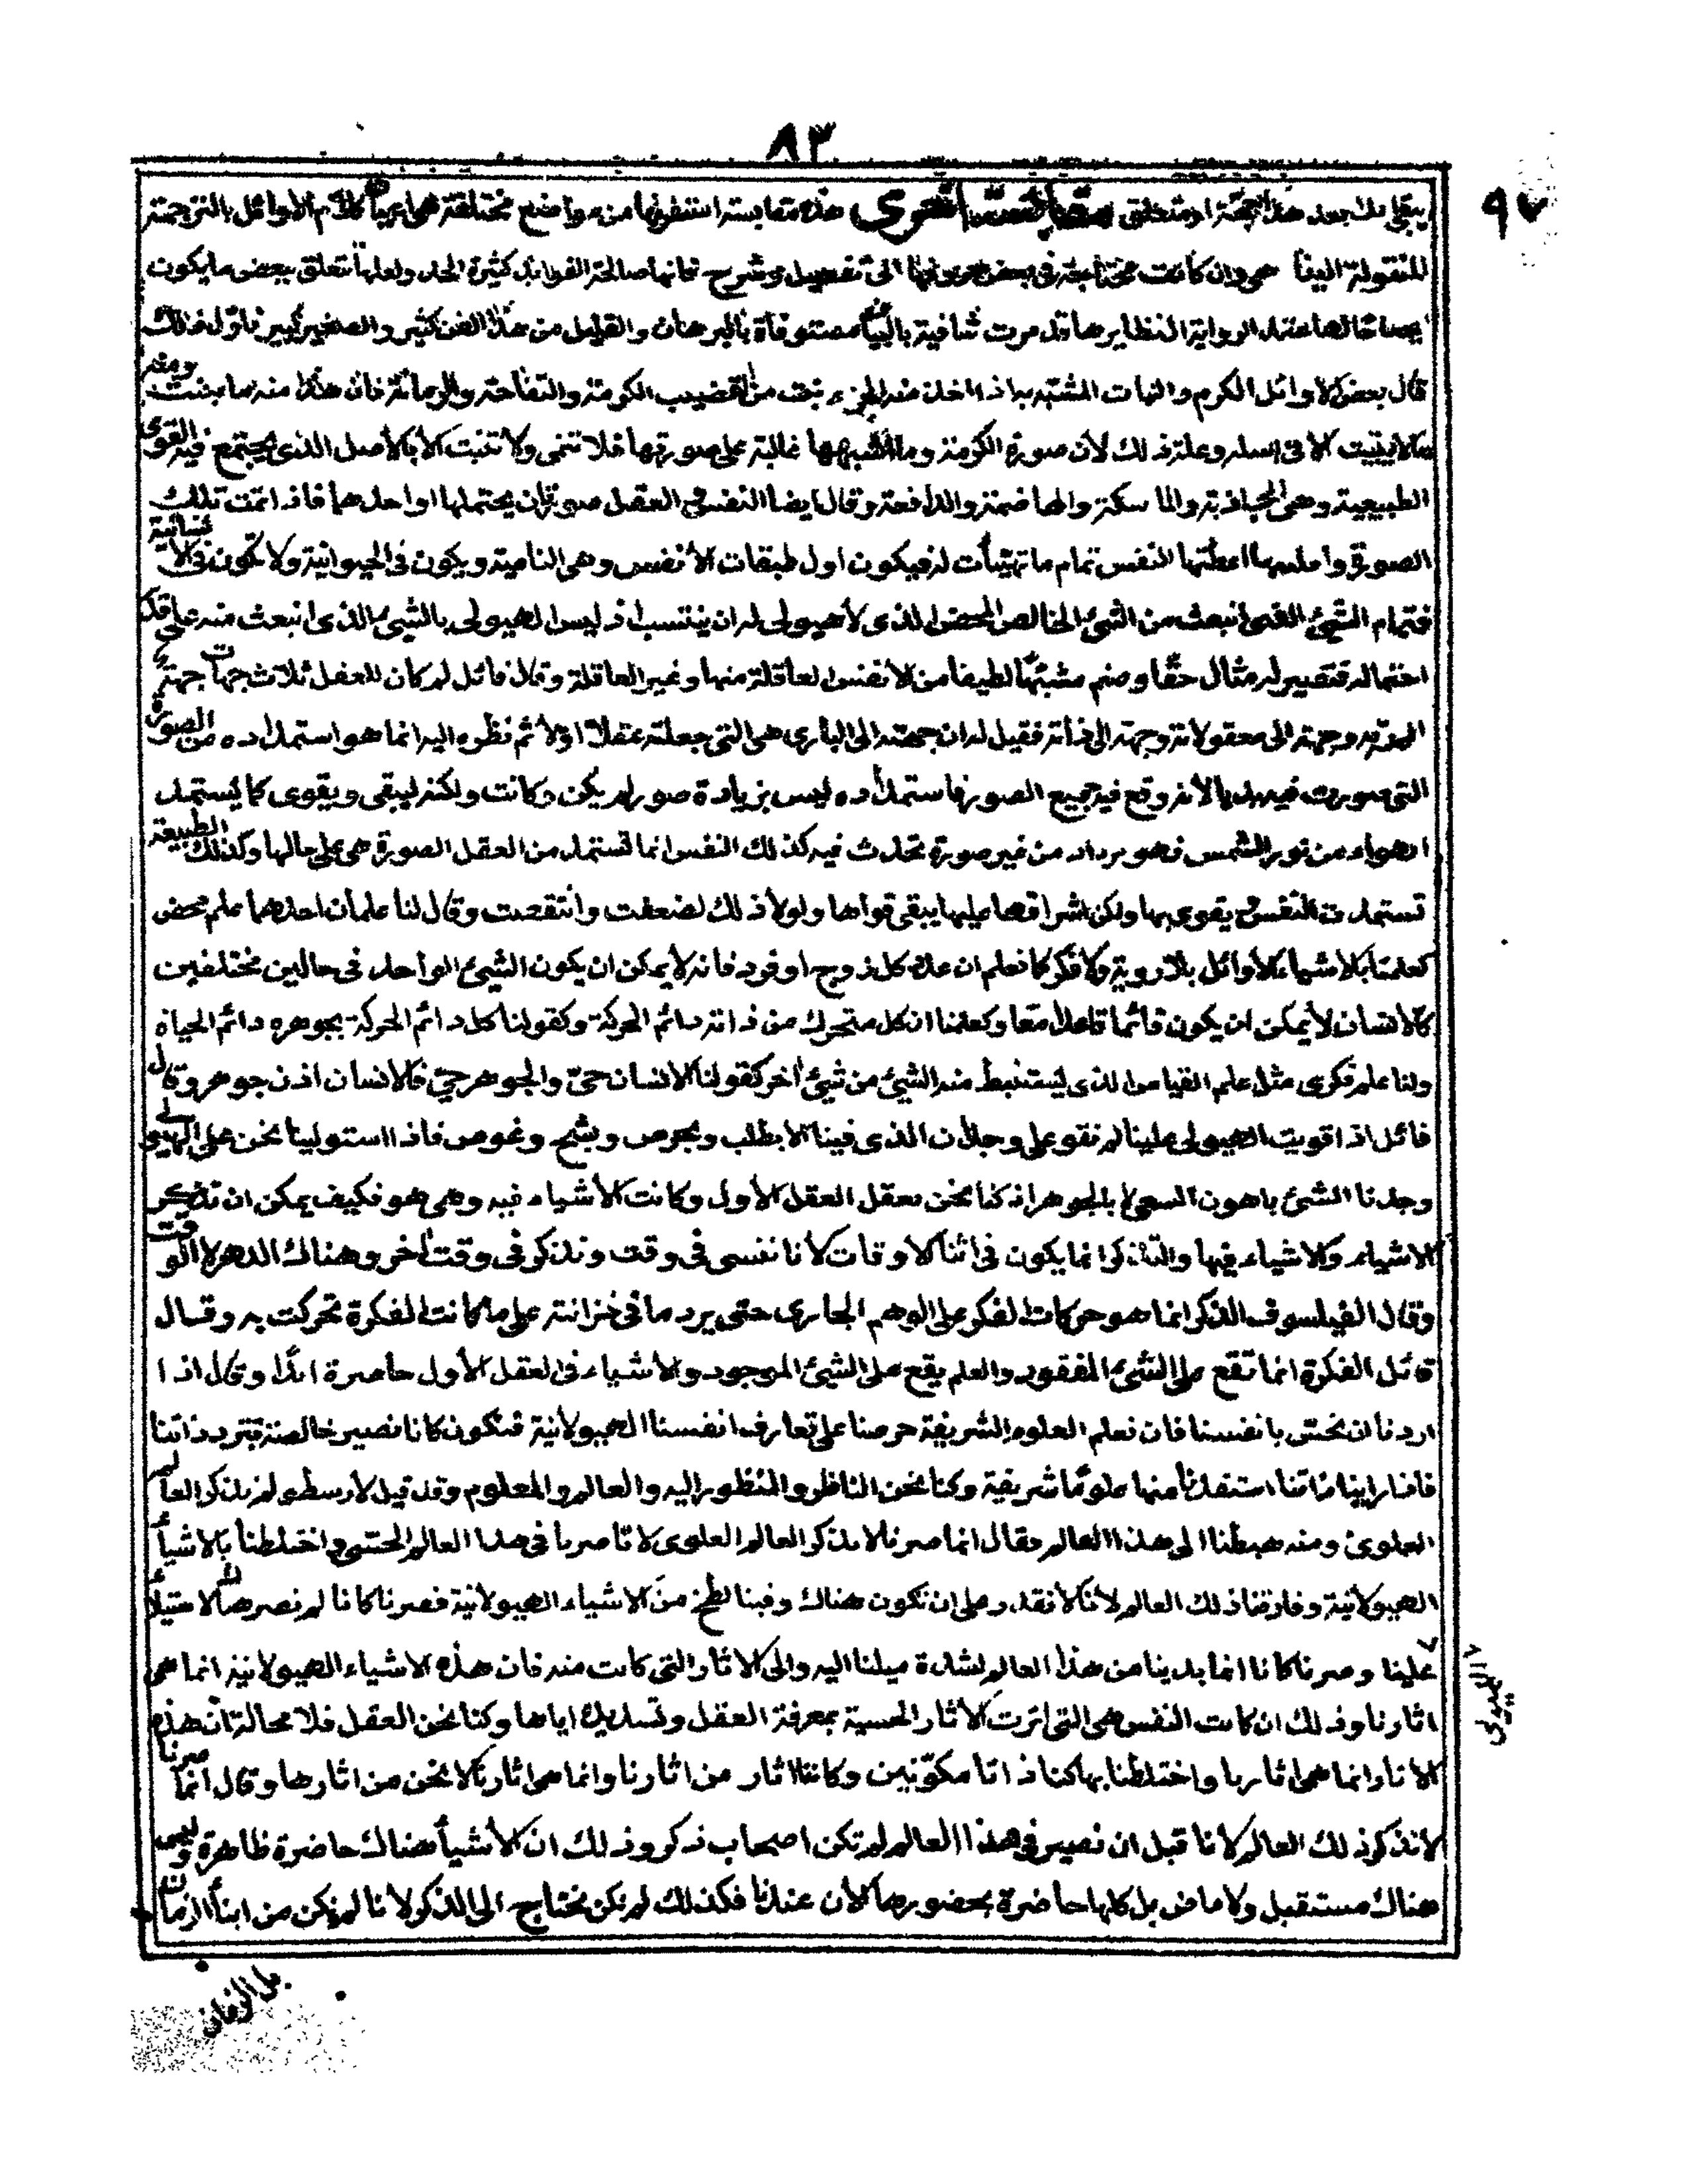 ٨٣
٩٧
يبقى لك بعد هذا او متعلق اخرى هذه مقابسة من مواضع مختلفة هى كلام الاوائل بالترجمة
المنقولة الينا هى وان كانت محتاجة فى بعض الى تفصيل وشرح فانها صالحة الفوايد كثيرة الجد ولعلها تتعلق ببعض ما يكون
الرواية النظايرها قد مرت شافية بالبيان مستوفاة بالبرهان والقليل من هذا الفن كثير والصغير كبير فاول ذلك
قال بعض الاوائل الكرم والنبات المشتبه به اذا اخذ منه الجزء نبت مثل قضيب الكرمة والتفاحة والرمانة فان هذا منه ما ينبت ومنه
ما لا ينبت الا فى اصله وعلة ذلك لان صورة الكرمة وما اشبهها غالبة على صورتها فلا تنمى ولا تنبت الا بالاصل الذى يجتمع فيه القوى
الطبيعية وهى الجاذبة والماسكة والهاضمة والدافعة وقال ايضا النفس فى العقل صورتان يحتملها او احدهما فاذا تمت تلك
الصورة اعطتها النفس تمام ما تهيئات له فيكون اول طبقات الانفس وهى النامية ويكون فى الحيوانية ولا تكون فى الانسانية
فتمام الشئ الذى انبعث من الشئ الخالص المحض الذى لا هيولى له ان ينتسب اذ ليس الهيولى بالشئ الذى انبعث منه على قدر
احتماله فتصير له مثال حقا وصنم مشبها لطيفا من الانفس العاقلة منها وغير العاقلة وقال قائل لم كان للعقل ثلاث جهات جهة
الى وجهة الى معقولاته وجهة الى ذاته فقيل له ان جهته الى البارى هى التى جعلته عقلا اولا ثم نظره اليه انما هو استمداده من الصورة
التى صورت فيه بدءا لانه وقع فيه جميع الصور فاستمداده ليس بزيادة صور لم يكن وكانت ولكنه ليبقى ويقوى كما يستمد
الهواء من نور الشمس فهو يزداد من غير صورة تحدث فيه كذلك النفس انما تستمد من العقل الصورة هى على حالها وكذلك الطبيعة
تستمد من النفس يقوى بها ولكن اشراقها عليها يبقى قواها ولولا ذلك لضعفت وانتقصت وقال لنا علمان احدهما علم محض
كعلمنا بالاشياء الاوائل بلا روية ولا فكر كما نعلم ان عدد كل زوج او فرد فانه لا يمكن ان يكون الشئ الواحد فى حالين مختلفين
كالانسان لا يمكن ان يكون قائما قاعدا معا وكعلمنا ان كل متحرك من ذاته دائم الحركة وكقولنا كل دائم الحركة بجوهره دائم الحياة
ولنا علم فكرى مثل علم القياس الذى ليستنبط منه الشئ من شئ اخر كقولنا الانسان حى والجوهر حى فالانسان اذن جوهر وقال
قائل اذا قويت الهيولى علينا لم نقو على وجدان الذى فينا الا بطلب وبحوص وبشح وغوص فاذا استولينا نحن على الهيولى
وجدنا الشئ باهون السعى لا بالجوهر اذ كنا نحن نعقل العقل الاول وكانت الاشياء فيه وهى هو فكيف يمكن ان تذكر
الاشياء والاشياء فيها والتذكر انما يكون فى اثنا الاوقات لانا ننسى فى وقت ونذكر فى وقت اخر وهناك الدهر لا الوقت
وقال الفيلسوف الذكر انما هو حركات الفكر على الوهم الجارى حتى يرد ما فى خزانته على ما كانت الفكرة تحركت به وقال
قائل الفكرة انما تقع على الشئ المفقود والعلم يقع على الشئ الموجود والاشياء فى العقل الاول حاضرة ابدا وقال اذا
اردنا ان نحس بانفسنا فان نعلم العلوم الشريفة حرصنا على تعارف انفسنا الهيولانية فنكون كانا نصير خالصة ذاتنا
فاذا راينا ذاتنا استفدنا منها علوما شريفة وكنا نحن الناظر والمنظور اليه والعالم والمعلوم وقد قيل لارسطو لم نذكر العالم
العلوى ومنه هبطنا الى هذا العالم فقال انما صرنا لا نذكر العالم العلوى لانا صرنا فى هذا العالم الحسى واختلطنا بالاشياء
الهيولانية وفارقنا ذلك العالم لانا لا نقدر على ان نكون هناك وفينا لطخ من الاشياء الهيولانية فصرنا كانا لم نصر هناك لاستيلاء
علينا وصرنا كانا انما بدينا من هذا العالم لشدة ميلنا اليه والى الاثار التى كانت منه فان هذه الاشياء الهيولانية انما هى
الهيولى
اثارنا وذلك ان كانت النفس هى التى اثرت الاثار الحسية بمعرفة العقل وتسديده اياها وكنا نحن العقل فلا محالة ان هذه
الاثار انما هى اثارنا واختلطنا بها كنا ذاتا مكونين وكانت اثار من اثارنا وانما هى اثارنا لا نحن من اثارها وقال انما صرنا
لا نذكر ذلك العالم لانا قبل ان نصير فى هذا العالم لم نكن اصحاب ذكر وذلك ان الاشياء هناك حاضرة ظاهرة وليس
هناك مستقبل ولا ماض بل كلها حاضرة بحضورها الان عندنا فكذلك لم نكن نحتاج الى الذكر لانا لم نكن من ابناء الزمان
بل الزمان